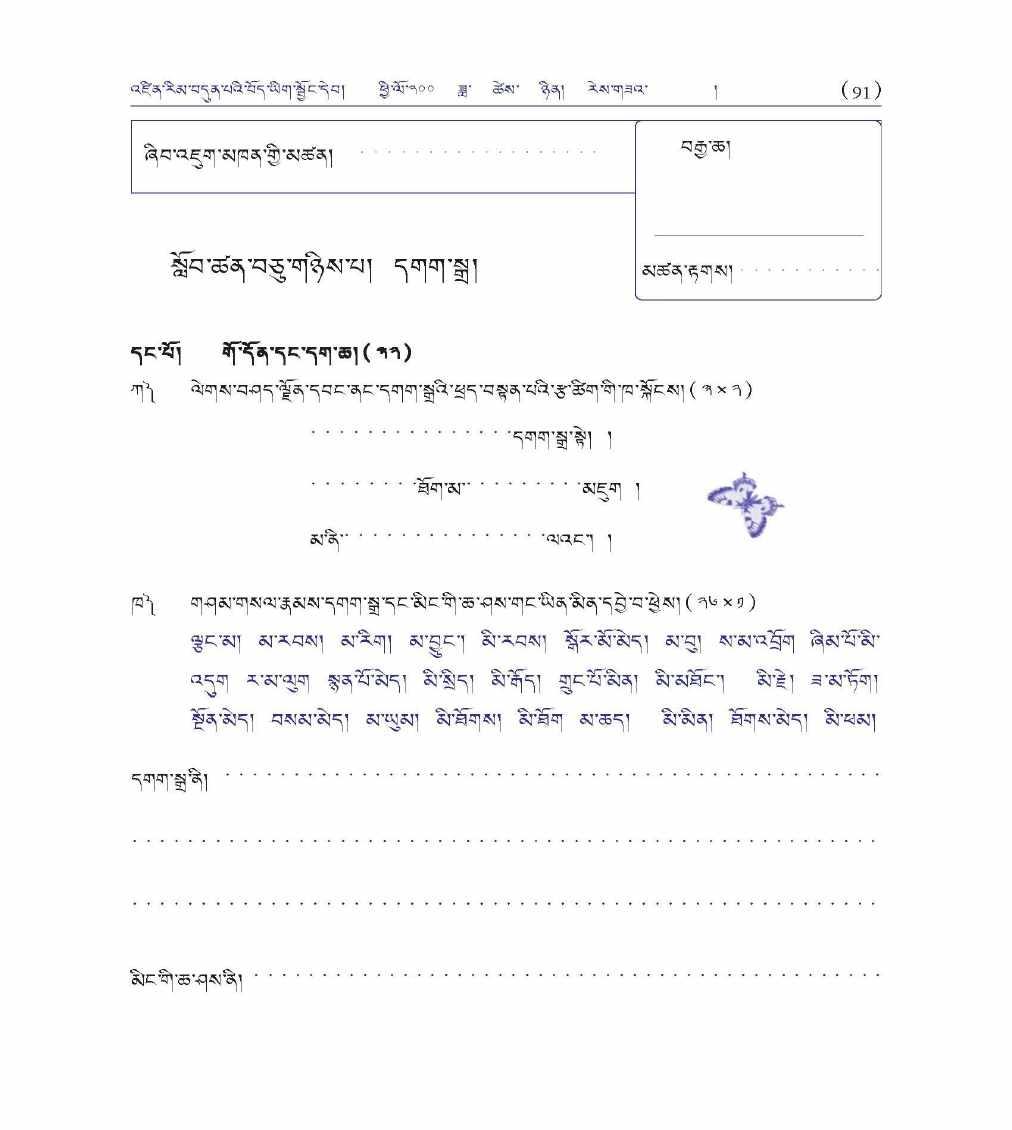 འཛིན་རིམ་བདུན་པའི་བོད་ཡིག་སྦྱོང་དེབ། ཕྱི་ལོ་༢༠༠ ཟླ་ ཚེས་ ཉིན། རེས་གཟའ་ ། (91)
ཞིབ་འཇུག་མཁན་གྱི་མཚན། ..................
བརྒྱ་ཆ།
སློབ་ཚན་བཅུ་གཉིས་པ། དགག་སྒྲ།
མཚན་རྟགས། ...........
དང་པོ། གོ་དོན་དང་དག་ཆ། (༣༢)
ཀ༽ ལེགས་བཤད་ལྗོན་དབང་ནང་དགག་སྒྲའི་ཕྲད་བསྟན་པའི་རྩ་ཚིག་གི་ཁ་སྐོངས། (༣ × ༢)
...............དགག་སྒྲ་སྟེ། །
........ཐོག་མ་.........མཇུག །
མ་ནི་...............ལའང་། །
ཁ༽ གཤམ་གསལ་རྣམས་དགག་སྒྲ་དང་མིང་གི་ཆ་ཤས་གང་ཡིན་མིན་དབྱེ་བ་ཕྱེས། (༢༦ × ༡)
ལྕང་མ། མ་རབས། མ་རིག། མ་བྱུང་། མི་རབས། སྒོར་མོ་མེད། མ་བུ། ས་མ་འབྲོག ཞིམ་པོ་མི་
འདུག ར་མ་ལུག སྙན་པོ་མེད། མི་སྲིད། མི་རྒོད། གྲུང་པོ་མིན། མི་མཐོང་། མི་རྗེ། ཟ་མ་ཏོག།
སྔོན་མེད། བསམ་མེད། མ་ཡུམ། མི་ཐོགས། མི་ཐོག མ་ཆད། མི་མིན། ཐོགས་མེད། མི་ཕམ།
དགག་སྒྲ་ནི། ................................................
......................................................
......................................................
མིང་གི་ཆ་ཤས་ནི། ..............................................